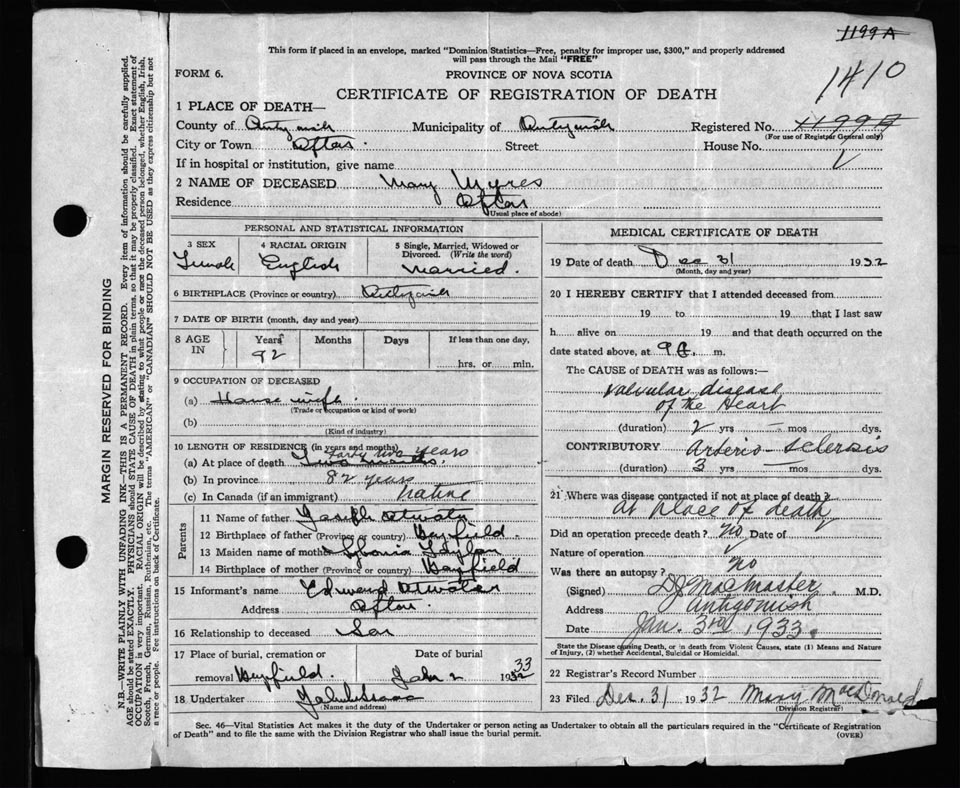 1199 A
This form if placed in an envelope, marked "Dominion Statistics—Free, penalty for improper use, $300," and properly addressed
will pass through the Mail "FREE"
1410
FORM 6.
PROVINCE OF NOVA SCOTIA
CERTIFICATE OF REGISTRATION OF DEATH
1 PLACE OF DEATH—
County of Municipality of Registered No. 1199
(For use of Registrar General only)
City or Town Afton. Street House No.
If in hospital or institution, give name
2 NAME OF DECEASED Mary Myres
Residence Afton
(Usual place of abode)
PERSONAL AND STATISTICAL INFORMATION
3 SEX 4 RACIAL ORIGIN 5 Single, Married, Widowed or
Divorced. (Write the word)
Female English Married.
6 BIRTHPLACE (Province or country)
7 DATE OF BIRTH (month, day and year)
8 AGE IN Years Months Days If less than one day,
hrs. or min.
9 OCCUPATION OF DECEASED
(a) House wife
(Trade or occupation or kind of work)
(b)
(Kind of industry)
10 LENGTH OF RESIDENCE (in years and months)
years
(a) At place of death
(b) In province 82 years
(c) In Canada (if an immigrant) native
Parents
11 Name of father Joseph Atwater
12 Birthplace of father (Province or country) Bayfield.
13 Maiden name of mother
14 Birthplace of mother (Province or country) Bayfield
15 Informant's name Edward Atwater
Address Afton.
16 Relationship to deceased Son
17 Place of burial, cremation or Date of burial
removal Bayfield. Jan 2 1932 33
18 Undertaker
(Name and address)
MEDICAL CERTIFICATE OF DEATH
19 Date of death Dec 31 1932
(Month, day and year)
20 I HEREBY CERTIFY that I attended deceased from
19 to 19 that I last saw
h alive on 19 and that death occurred on
date stated above, at 9 m.
The CAUSE of DEATH was as follows:—
Valvular disease
of the Heart
(duration) 2 yrs — mos dys.
CONTRIBUTORY Arterio sclerosis
(duration) 3 yrs — mos dys.
21 Where was disease contracted if not at place of death?
at place of death
Did an operation precede death? no Date of
Nature of operation
Was there an autopsy? no
(Signed) D J MacMaster M.D.
Address Antigonish
Date Jan. 3rd 1933.
State the Disease causing Death, or in death from Violent Causes, state (1) Means and Nature
of Injury, (2) whether Accidental, Suicidal or Homicidal.
22 Registrar's Record Number
23 Filed Dec. 31 1932 Mary MacDonald
(Division Registrar)
Sec. 46—Vital Statistics Act makes it the duty of the Undertaker or person acting as Undertaker to obtain all the particulars required in the "Certificate of Registration
of Death" and to file the same with the Division Registrar who shall issue the burial permit.
(OVER)
MARGIN RESERVED FOR BINDING
N.B.—WRITE PLAINLY WITH UNFADING INK—THIS IS A PERMANENT RECORD. Every item of information should be carefully supplied.
AGE should be stated EXACTLY. PHYSICIANS should STATE CAUSE OF DEATH in plain terms, so that it may be properly classified. Exact statement of
OCCUPATION is very important. RACIAL ORIGIN will be described by stating to what people or race the deceased person belonged, whether English, Irish,
Scotch, French, German, Russian, Ruthenian, etc. The terms "AMERICAN" or "CANADIAN" SHOULD NOT BE USED as they express citizenship but not
a race or people. Fee instructions on back of Certificate.